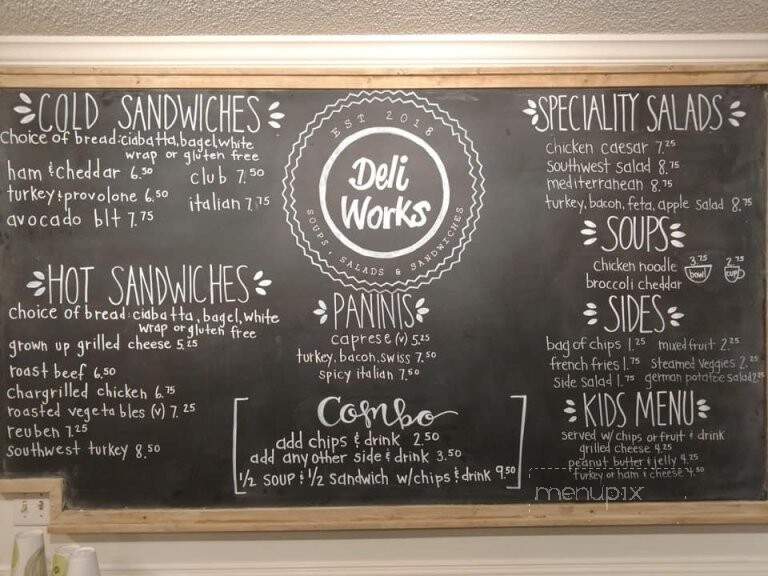 COLD SANDWICHES
Choice of bread: ciabatta, bagel, white
wrap or gluten free
ham & cheddar 6.50
turkey & provolone 6.50
avocado blt 7.75
club 7.50
italian 7.75
HOT SANDWICHES
choice of bread: ciabatta, bagel, white
wrap or gluten free
grown up grilled cheese 5.25
roast beef 6.50
chargrilled chicken 6.75
roasted vegetables (v) 7.25
reuben 7.25
southwest turkey 8.50
EST 2018
Deli
Works
SOUPS, SALADS & SANDWICHES
PANINIS
caprese (v) 5.25
turkey, bacon, swiss 7.50
spicy italian 7.50
Combo
add chips & drink 2.50
add any other side & drink 3.50
1/2 soup & 1/2 sandwich w/chips & drink 9.50
SPECIALITY SALADS
chicken caesar 7.25
southwest salad 8.75
mediterranean 8.75
turkey, bacon, feta, apple salad 8.75
SOUPS
chicken noodle
broccoli cheddar
3.75
bowl
2.75
cup
SIDES
bag of chips 1.25 mixed fruit 2.25
french fries 1.75 steamed veggies 2.25
side salad 1.75 german potatoe salad 2.25
KIDS MENU
served w/ chips or fruit & drink
grilled cheese 4.25
peanut butter & jelly 4.25
turkey or ham & cheese 4.50
menupix